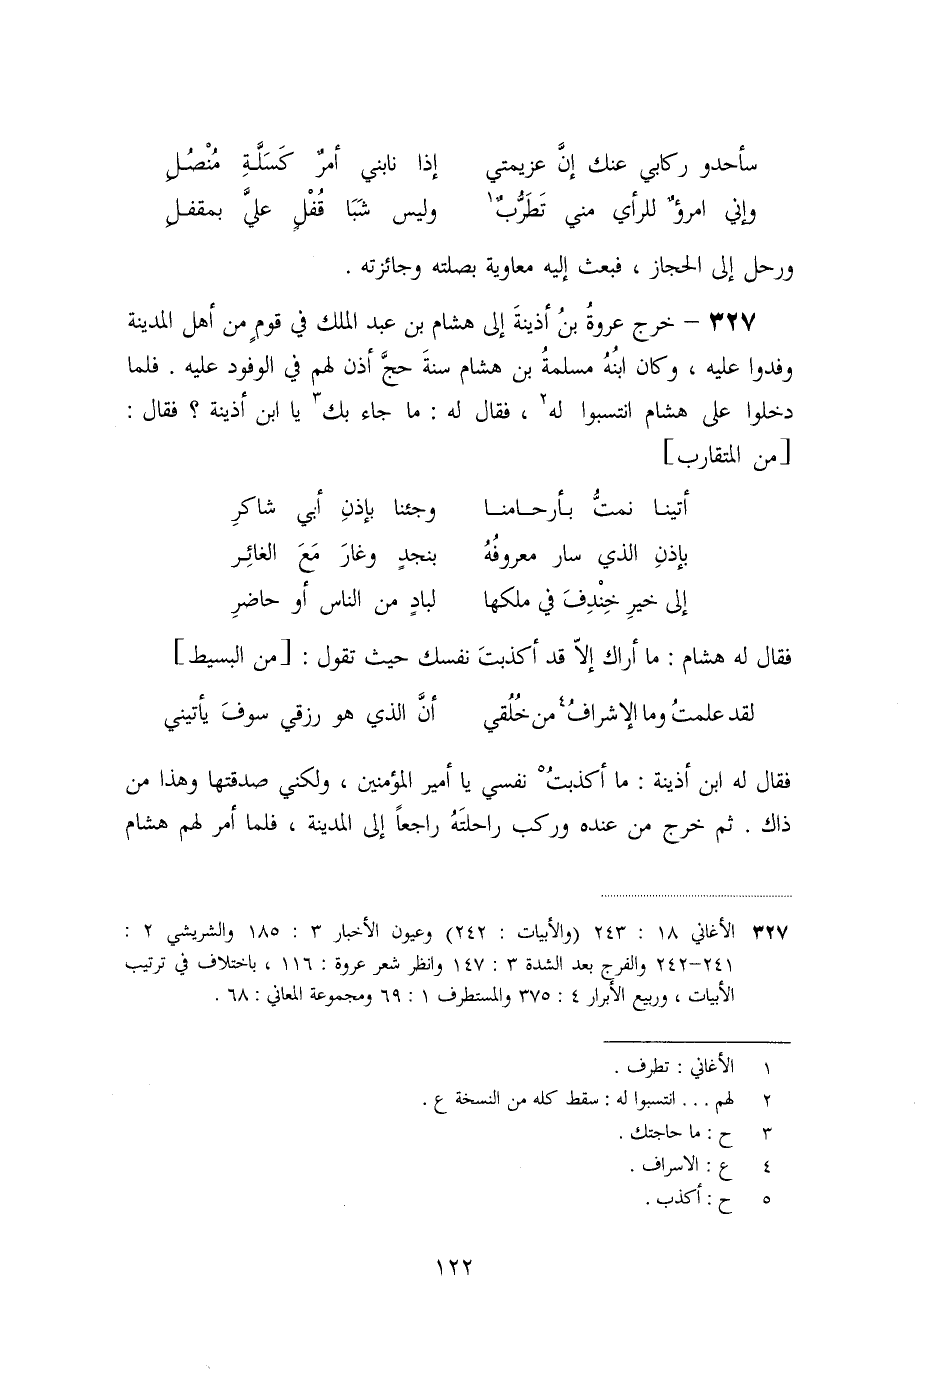 سأحدو ركابي عنك إنَّ عزيمتي إذا نابني أمرٌ كَسَلَّةِ مُنْصُلِ
وإني امرؤٌ للرأي مني تَطَرُّبٌ١ وليس شَبَا قُفْلٍ عليَّ بمقفلِ
ورحل إلى الحجاز ، فبعث إليه معاوية بصلته وجائزته .
٣٢٧ – خرج عروةُ بنُ أذينةَ إلى هشام بن عبد الملك في قومٍ من أهل المدينة
وفدوا عليه ، وكان ابنُهُ مسلمةُ بن هشام سنةَ حجَّ أذن لهم في الوفود عليه . فلما
دخلوا على هشام انتسبوا له٢ ، فقال له : ما جاء بك٣ يا ابن أذينة ؟ فقال :
[من المتقارب]
أتينا نمتُّ بأرحامنا وجئنا بإذنِ أبي شاكرِ
بإذنِ الذي سار معروفُهُ بنجدٍ وغارَ مَعَ الغائِر
إلى خيرِ خِنْدِفَ في ملكها لبادٍ من الناس أو حاضرِ
فقال له هشام : ما أراك إلاّ قد أكذبتَ نفسك حيث تقول : [من البسيط]
لقد علمتُ وما الإشرافُ٤ من خُلُقي أنَّ الذي هو رزقي سوفَ يأتيني
فقال له ابن أذينة : ما أكذبتُ٥ نفسي يا أمير المؤمنين ، ولكني صدقتها وهذا من
ذاك . ثم خرج من عنده وركب راحلتَهُ راجعاً إلى المدينة ، فلما أمر لهم هشام
٣٢٧ الأغاني ١٨ : ٢٤٣ (والأبيات : ٢٤٢) وعيون الأخبار ٣ : ١٨٥ والشريشي ٢ :
٢٤١–٢٤٢ والفرج بعد الشدة ٣ : ١٤٧ وانظر شعر عروة : ١١٦ ، باختلاف في ترتيب
الأبيات ، وربيع الأبرار ٤ : ٣٧٥ والمستطرف ١ : ٦٩ ومجموعة المعاني : ٦٨ .
١ الأغاني : تطرف .
٢ لهم ... انتسبوا له : سقط كله من النسخة ع .
٣ ح : ما حاجتك .
٤ ع : الاسراف .
٥ ح : أكذب .
١٢٢